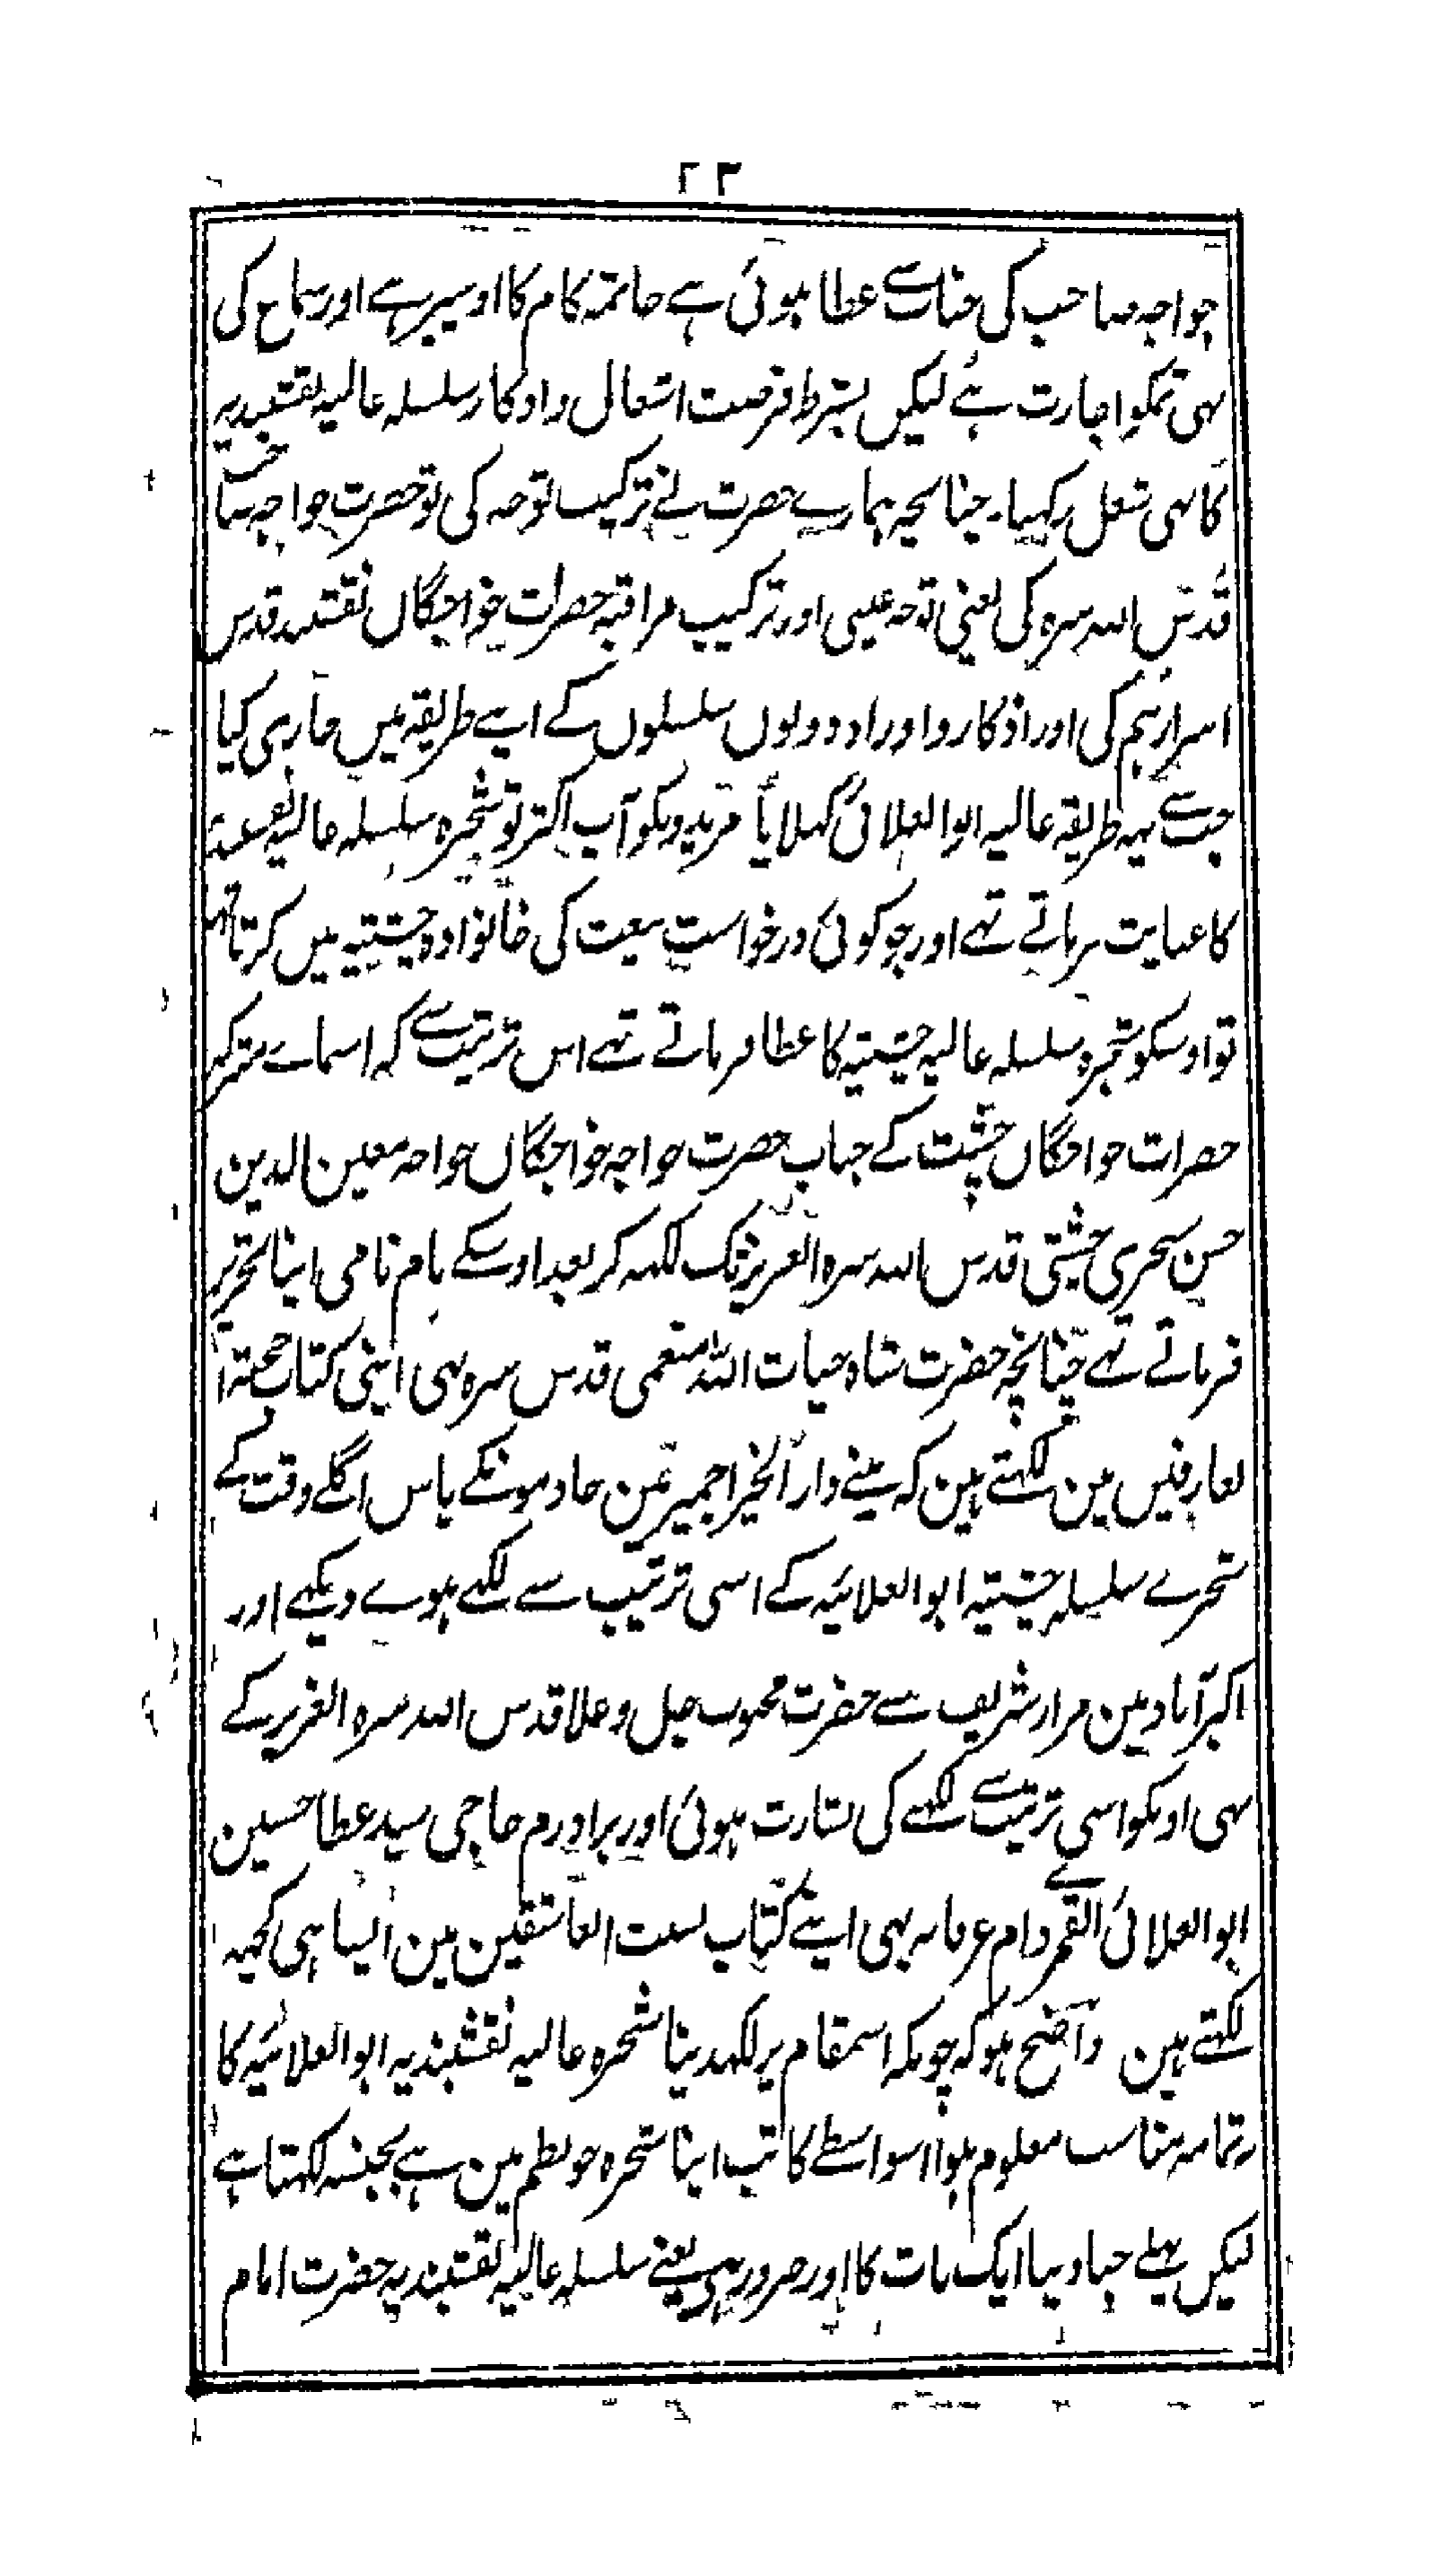 ۲۳
خواجہ صاحب کی جناب سے عطا ہوئی ہے خاتمہ کام کا اوسپر ہے اور سماع کی
بھی تمکو اجازت ہے لیکن بشرط فرصت اشغال واذکار سلسلہ عالیہ نقشبندیہ
کا بھی شغل رکھیا۔ چنانچہ ہمارے حضرت نے ترکیب توجہ کی تو حضرت خواجہ صاحب
قدس اللہ سرہ کی یعنی توجہ عینی اور ترکیب مراقبہ حضرات خواجگان نقشبند قدس
اسرارہم کی اور اذکار و اوراد دونوں سلسلوں کے اپنے طریقہ میں جاری کیا
جب سے یہہ طریقہ عالیہ ابوالعلائی کہلایا مریدونکو آپ اکثر تو شجرہ سلسلہ عالیہ نقشبندیہ
کا عنایت فرماتے تھے اور جو کوئی درخواست بیعت کی خانوادہ چشتیہ میں کرتا تھا
تو اوسکو شجرہ سلسلہ عالیہ چشتیہ کا عطا فرماتے تھے اس ترتیب سے کہ اسمائے متبرکہ
حضرات خواجگان چشت کے جناب حضرت خواجہ خواجگان خواجہ معین الدین
حسن سجزی چشتی قدس اللہ سرہ العزیز تک لکھہ کر بعد اوسکے نام نامی اپنا تحریر
فرماتے تھے چنانچہ حضرت شاہ حیات اللہ منعمی قدس سرہ بھی اپنی کتاب حجۃ ا
لعارفین مین لکھتے ہین کہ مینے دار الخیر اجمیر مین خادمونکے پاس اگلے وقت کے
شجرے سلسلہ چشتیہ ابوالعلائیہ کے اسی ترتیب سے لکھے ہوے دیکھے اور
اکبرآباد مین مزار شریف سے حضرت محبوب جل وعلا قدس اللہ سرہ العزیز کے
بھی اونکو اسی ترتیب سے لکھنے کی بشارت ہوئی اور برادرم حاجی سید عطا حسین
ابوالعلائی القمری دام عرفانہ بھی اپنے کتاب العاشقین مین ایسا ہی کچھہ
لکھتے ہین واضح ہو کہ چونکہ اسمقام پر لکھدینا شجرہ عالیہ نقشبندیہ ابوالعلائیہ کا
بتمامہ مناسب معلوم ہوا اسواسطے کاتب اپنا شجرہ جو نظم مین ہے بجنسہ لکھتا ہے
لیکن پہلے جتا دینا ایک بات کا اور ضرور ہی یعنے سلسلہ عالیہ نقشبندیہ حضرت امام